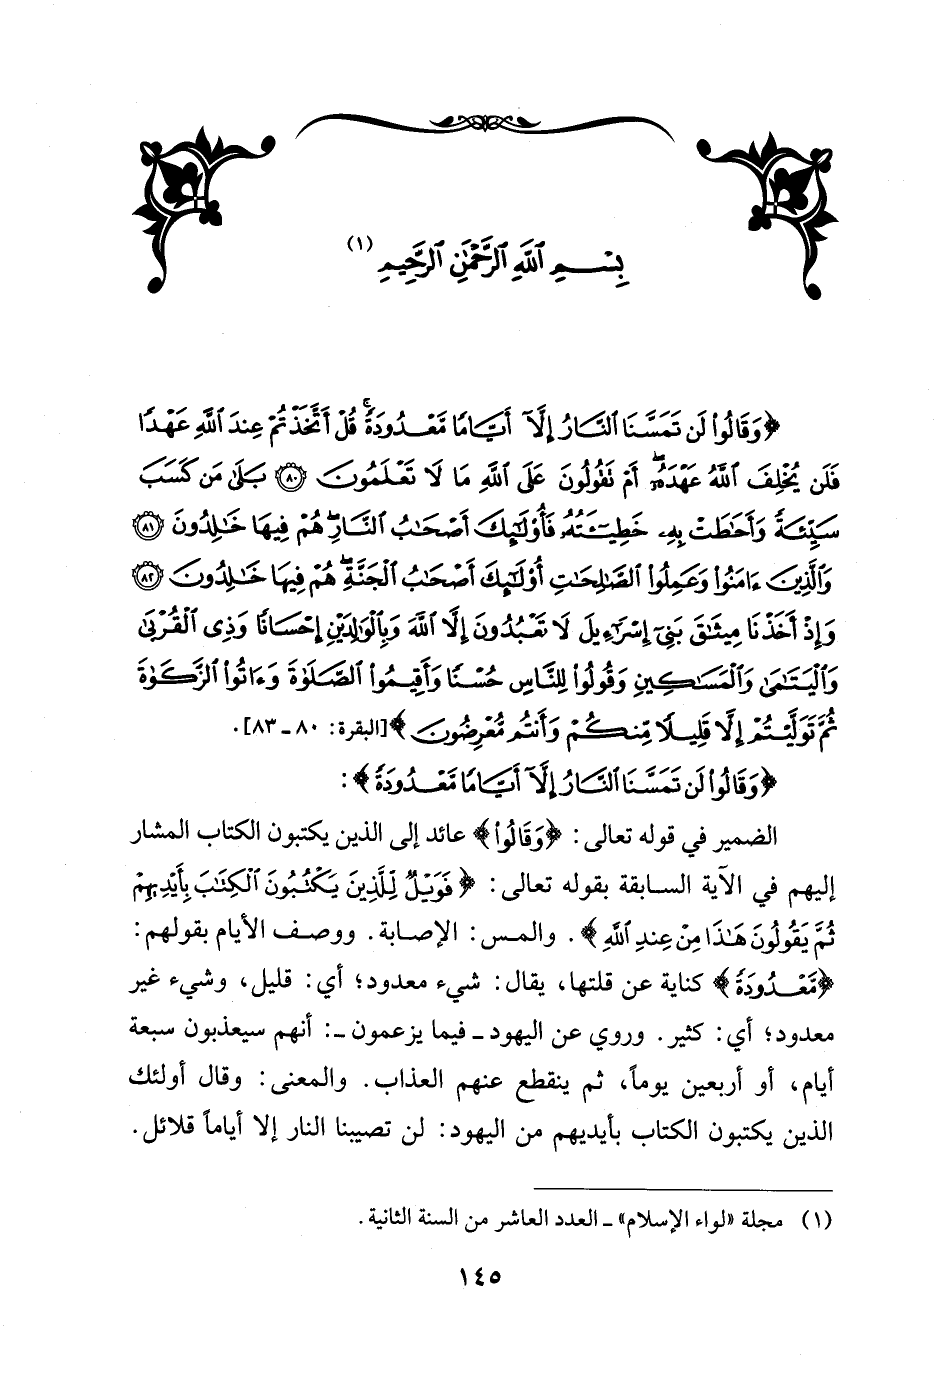 بِسْمِ ٱللَّهِ ٱلرَّحْمَٰنِ ٱلرَّحِيمِ (١)
﴿وَقَالُوا۟ لَن تَمَسَّنَا ٱلنَّارُ إِلَّآ أَيَّامًا مَّعْدُودَةً ۚ قُلْ أَتَّخَذْتُمْ عِندَ ٱللَّهِ عَهْدًا
فَلَن يُخْلِفَ ٱللَّهُ عَهْدَهُۥٓ ۖ أَمْ تَقُولُونَ عَلَى ٱللَّهِ مَا لَا تَعْلَمُونَ ﴿٨٠﴾ بَلَىٰ مَن كَسَبَ
سَيِّئَةً وَأَحَٰطَتْ بِهِۦ خَطِيٓـَٔتُهُۥ فَأُو۟لَٰٓئِكَ أَصْحَٰبُ ٱلنَّارِ ۖ هُمْ فِيهَا خَٰلِدُونَ ﴿٨١﴾
وَٱلَّذِينَ ءَامَنُوا۟ وَعَمِلُوا۟ ٱلصَّٰلِحَٰتِ أُو۟لَٰٓئِكَ أَصْحَٰبُ ٱلْجَنَّةِ ۖ هُمْ فِيهَا خَٰلِدُونَ ﴿٨٢﴾
وَإِذْ أَخَذْنَا مِيثَٰقَ بَنِىٓ إِسْرَٰٓءِيلَ لَا تَعْبُدُونَ إِلَّا ٱللَّهَ وَبِٱلْوَٰلِدَيْنِ إِحْسَانًا وَذِى ٱلْقُرْبَىٰ
وَٱلْيَتَٰمَىٰ وَٱلْمَسَٰكِينِ وَقُولُوا۟ لِلنَّاسِ حُسْنًا وَأَقِيمُوا۟ ٱلصَّلَوٰةَ وَءَاتُوا۟ ٱلزَّكَوٰةَ
ثُمَّ تَوَلَّيْتُمْ إِلَّا قَلِيلًا مِّنكُمْ وَأَنتُم مُّعْرِضُونَ﴾ [البقرة: ٨٠ ـ ٨٣].
﴿وَقَالُوا۟ لَن تَمَسَّنَا ٱلنَّارُ إِلَّآ أَيَّامًا مَّعْدُودَةً﴾:
الضمير في قوله تعالى: ﴿وَقَالُوا۟﴾ عائد إلى الذين يكتبون الكتاب المشار
إليهم في الآية السابقة بقوله تعالى: ﴿فَوَيْلٌ لِّلَّذِينَ يَكْتُبُونَ ٱلْكِتَٰبَ بِأَيْدِيهِمْ
ثُمَّ يَقُولُونَ هَٰذَا مِنْ عِندِ ٱللَّهِ﴾. والمس: الإصابة. ووصف الأيام بقولهم:
﴿مَّعْدُودَةً﴾ كناية عن قلتها، يقال: شيء معدود؛ أي: قليل، وشيء غير
معدود؛ أي: كثير. وروي عن اليهود ـ فيما يزعمون ـ: أنهم سيعذبون سبعة
أيام، أو أربعين يوماً، ثم ينقطع عنهم العذاب. والمعنى: وقال أولئك
الذين يكتبون الكتاب بأيديهم من اليهود: لن تصيبنا النار إلا أياماً قلائل.
(١) مجلة «لواء الإسلام» ـ العدد العاشر من السنة الثانية.
١٤٥